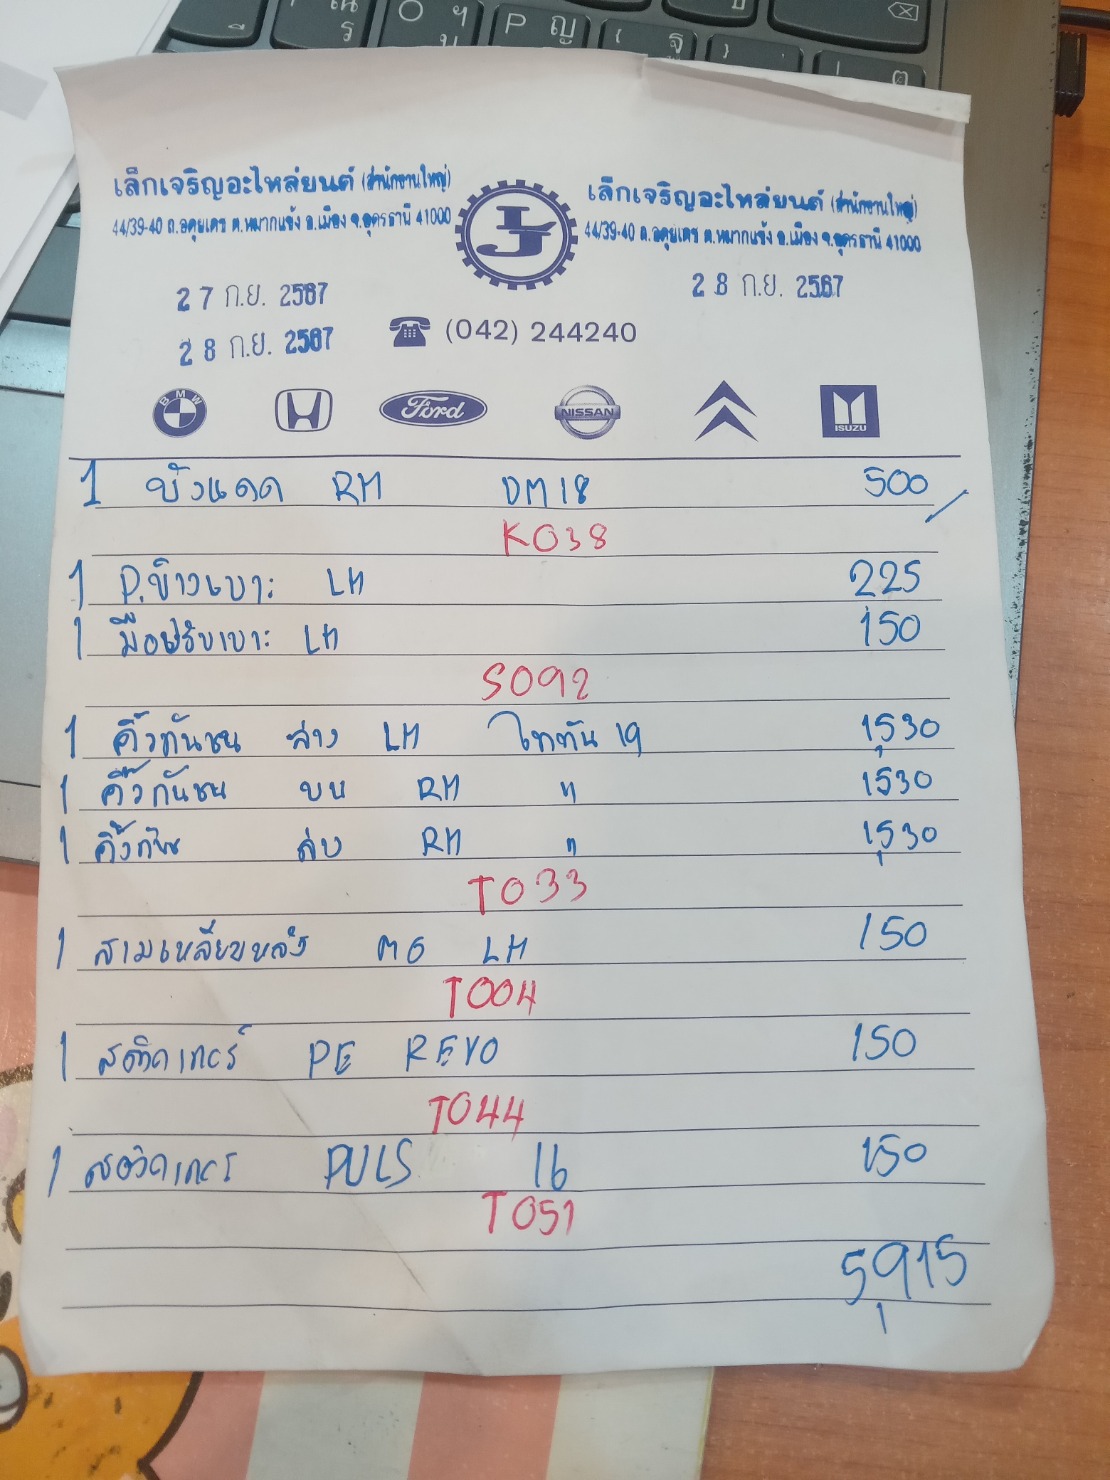 เล็กเจริญอะไหล่ยนต์ (สำนักงานใหญ่)
44/39-40 ถ.อดุยเดช ต.หมากแข้ง อ.เมือง จ.อุดรธานี 41000
LJ
เล็กเจริญอะไหล่ยนต์ (สำนักงานใหญ่)
44/39-40 ถ.อดุยเดช ต.หมากแข้ง อ.เมือง จ.อุดรธานี 41000
27 ก.ย. 2567
28 ก.ย. 2567
28 ก.ย. 2567
(042) 244240
BMW Ford NISSAN ISUZU
1 บังแดด RH DM18 500
K038
1 P.ข้างเบาะ LH 225
1 มือปรับเบาะ LH 150
S092
1 คิ้วกันชน ล่าง LH ไททัน 19 1,530
1 คิ้วกันชน บน RH " 1,530
1 คิ้วกัน RH " 1,530
T033
1 สามเหลี่ยมหลัง LH 150
T004
1 สติกเกอร์ PE REVO 150
T044
1 PULS 16 150
T051
5,915